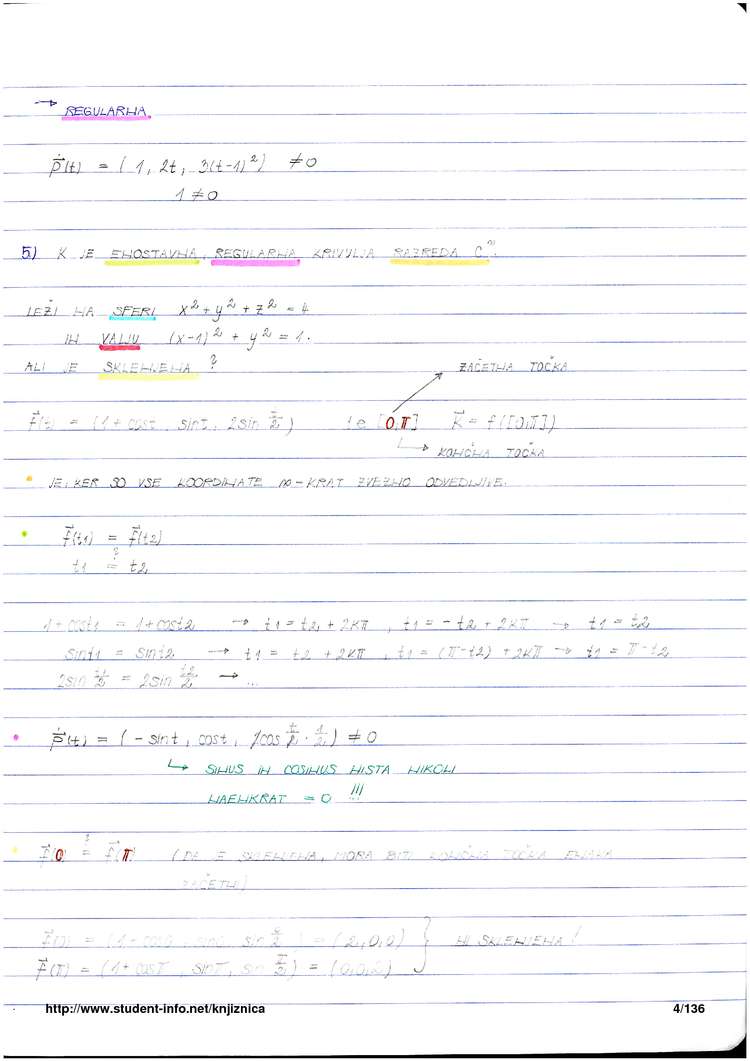 → REGULARNA
ṗ(t) = (1, 2t, 3(t-1)²) ≠0
1 ≠0
5) K JE ENOSTAVNA, REGULARNA KRIVULJA RAZREDA C^∞.
LEŽI NA SFERI x²+y²+z²=4
IN VALJU (x-1)²+y²=1.
ALI JE SKLENJENA?
ZAČETNA TOČKA
f(t) = (1+cost, sint, 2sin t/2) t∈[0,π] K = f([0,π])
↳ KONČNA TOČKA
• JE, KER SO VSE KOORDINATE ∞-KRAT ZVEZNO ODVEDLJIVE.
• f(t1) = f(t2)
t1 =? t2
1+cost1 = 1+cost2 → t1=t2+2kπ, t1=-t2+2kπ → t1=t2
sint1 = sint2 → t1 = t2+2kπ, t1=(π-t2)+2kπ → t1=π-t2
2sin t1/2 = 2sin t2/2 → ...
• ṗ(t) = (-sint, cost, 2cos t/2 · 1/2) ≠0
↳ SINUS IN COSINUS NISTA NIKOLI
NAENKRAT = 0 !!!
• f(0) =? f(π) (DA JE SKLENJENA, MORA BITI KONČNA TOČKA ENAKA
ZAČETNI)
f(0) = (1+cos0, sin0, sin 0/2) = (2,0,0) } NI SKLENJENA!
f(π) = (1+cosπ, sinπ, sin π/2) = (0,0,2)
http://www.student-info.net/knjiznica 4/136